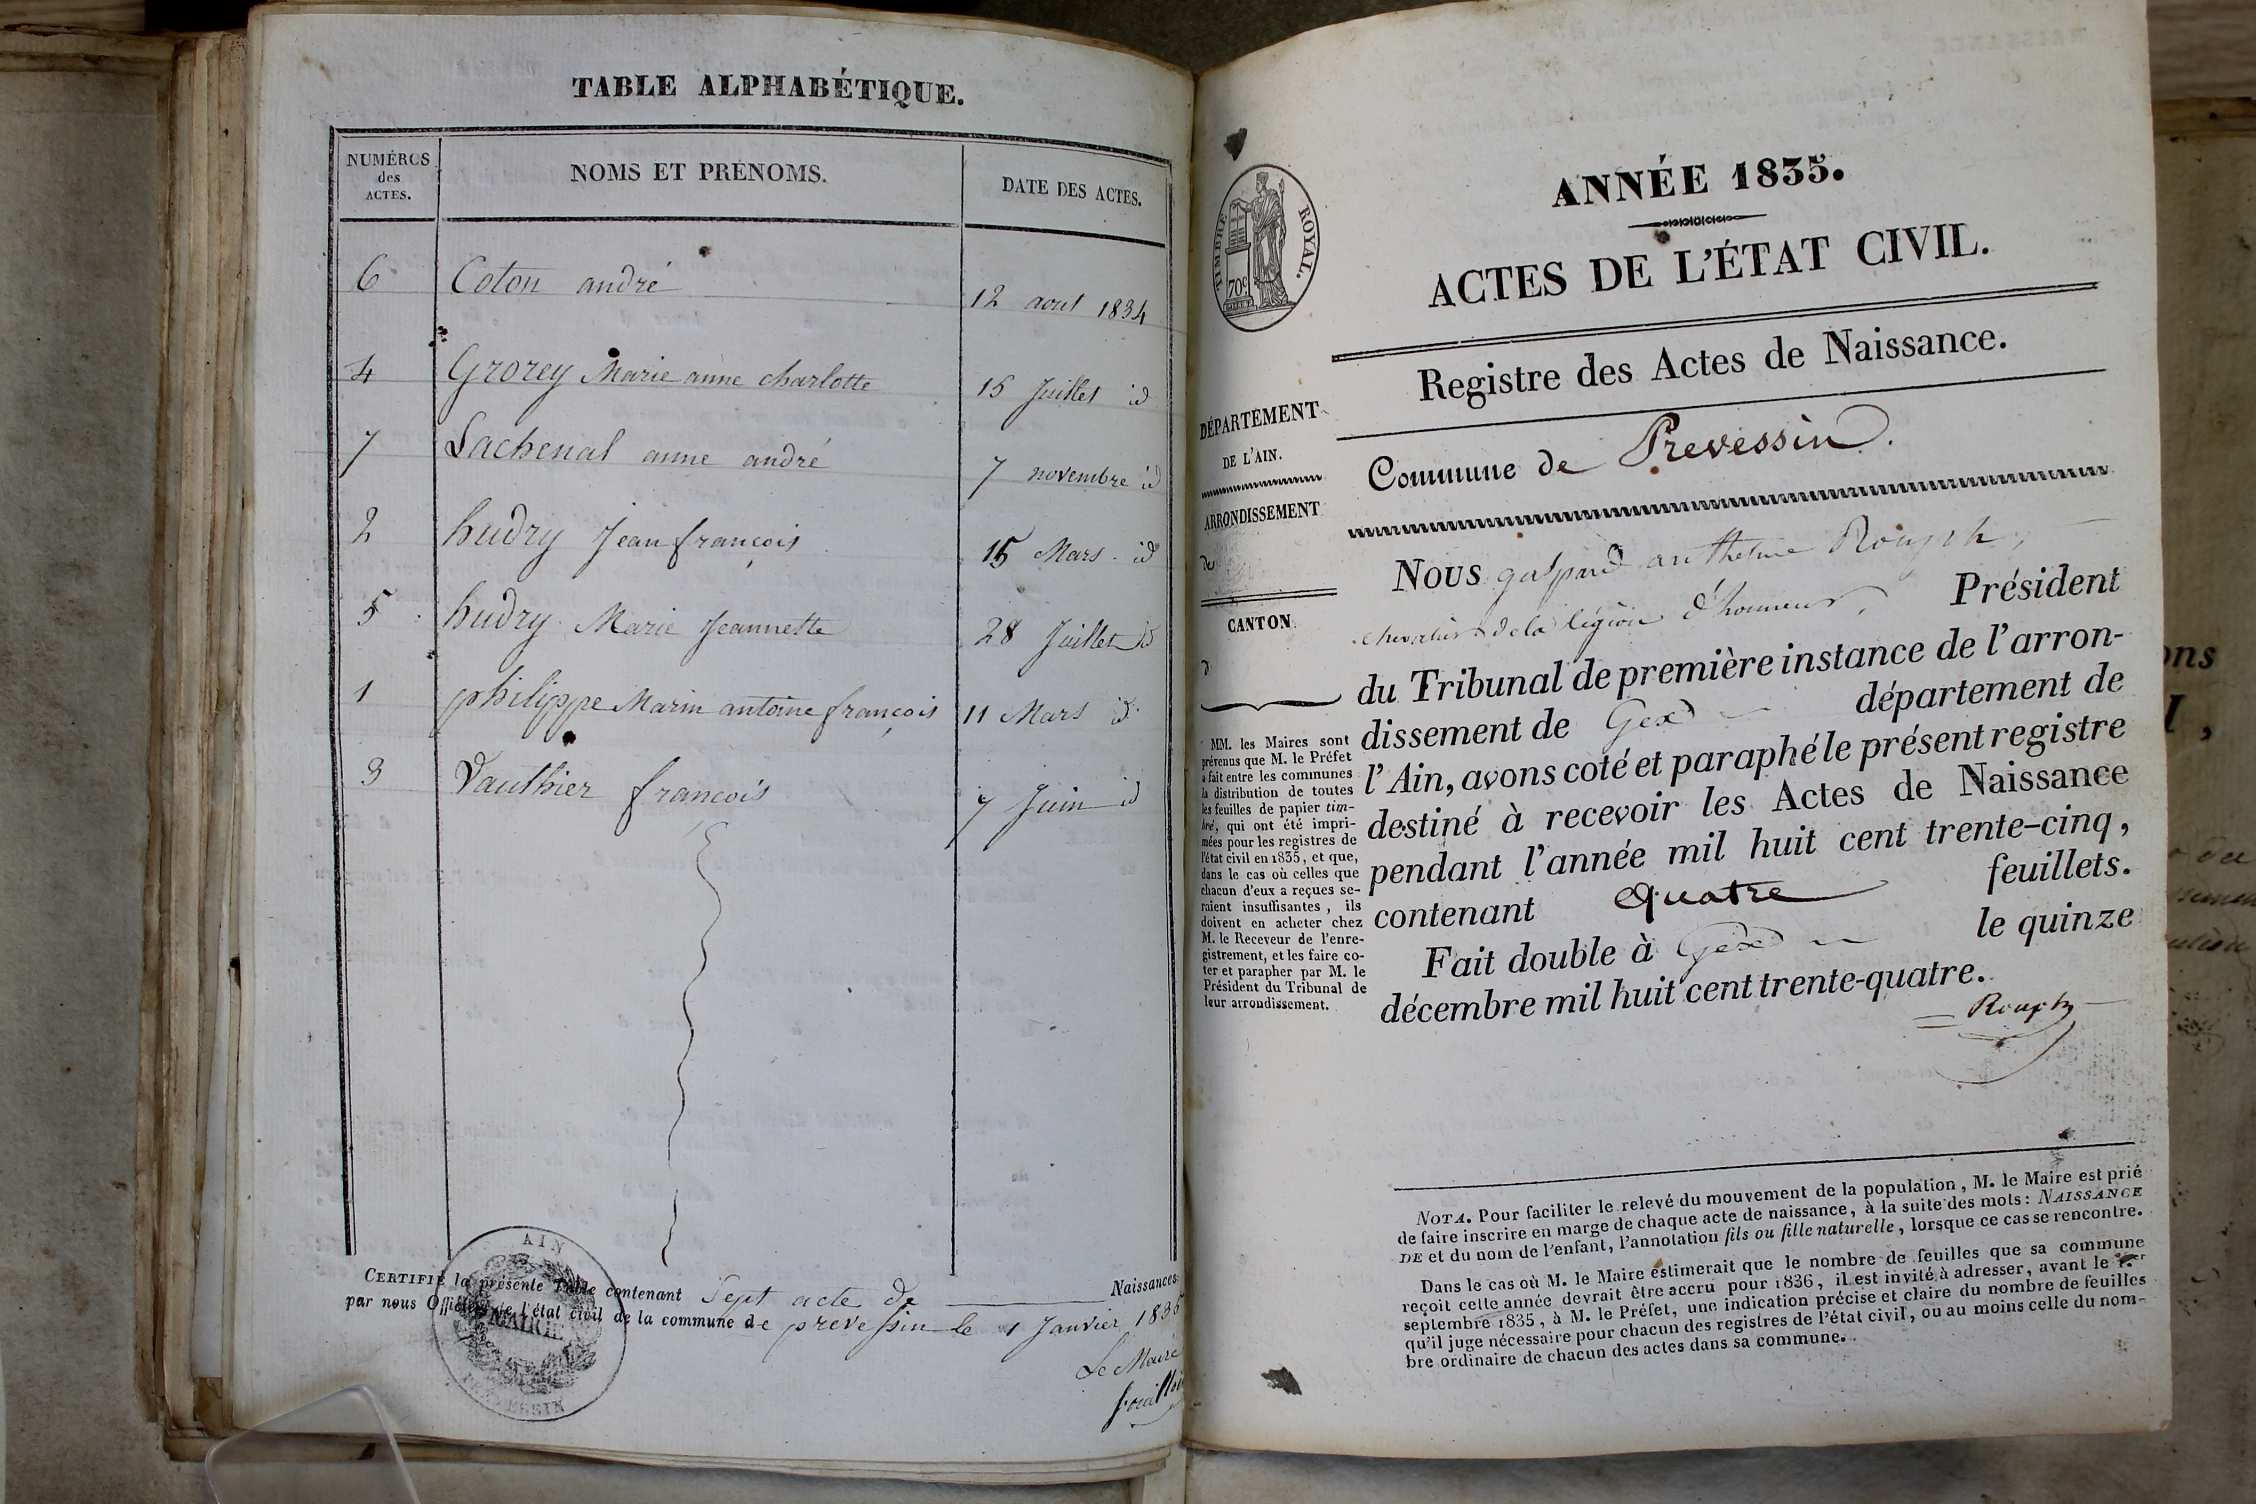 TABLE ALPHABÉTIQUE.
NUMÉROS
des
ACTES.
NOMS ET PRÉNOMS.
DATE DES ACTES.
6 Coton andré 12 aout 1834
4 Grorey Marie anne charlotte 15 Juillet id
7 Lachenal anne andré 7 novembre id
2 hudry Jean françois 15 Mars id
5 hudry Marie Jeannette 28 Juillet id
1 philippe Marin antoine françois 11 Mars id
3 Vauthier françois 7 Juin id
CERTIFIÉ la présente Table contenant Sept acte de Naissances
par nous Officier de l'état civil de la commune de prevessin le 1 Janvier 1835
Le Maire
AIN
MAIRIE
ANNÉE 1835.
TIMBRE ROYAL.
70c
ACTES DE L'ÉTAT CIVIL.
Registre des Actes de Naissance.
DÉPARTEMENT
DE L'AIN.
ARRONDISSEMENT
de
CANTON
d
Commune de Prevessin.
Nous gaspard anthelme Rouph,
chevalier de la légion d'honneur, Président
du Tribunal de première instance de l'arron-
dissement de Gex département de
l'Ain, avons coté et paraphé le présent registre
destiné à recevoir les Actes de Naissance
pendant l'année mil huit cent trente-cinq,
contenant quatre feuillets.
Fait double à Gex le quinze
décembre mil huit cent trente-quatre.
Rouph
MM. les Maires sont
prévenus que M. le Préfet
a fait entre les communes
la distribution de toutes
les feuilles de papier tim-
bré, qui ont été impri-
mées pour les registres de
l'état civil en 1835, et que,
dans le cas où celles que
chacun d'eux a reçues se-
raient insuffisantes, ils
doivent en acheter chez
M. le Receveur de l'enre-
gistrement, et les faire co-
ter et parapher par M. le
Président du Tribunal de
leur arrondissement.
NOTA. Pour faciliter le relevé du mouvement de la population, M. le Maire est prié
de faire inscrire en marge de chaque acte de naissance, à la suite des mots: NAISSANCE
DE et du nom de l'enfant, l'annotation fils ou fille naturelle, lorsque ce cas se rencontre.
Dans le cas où M. le Maire estimerait que le nombre de feuilles que sa commune
reçoit cette année devrait être accru pour 1836, il est invité à adresser, avant le 1.er
septembre 1835, à M. le Préfet, une indication précise et claire du nombre de feuilles
qu'il juge nécessaire pour chacun des registres de l'état civil, ou au moins celle du nom-
bre ordinaire de chacun des actes dans sa commune.